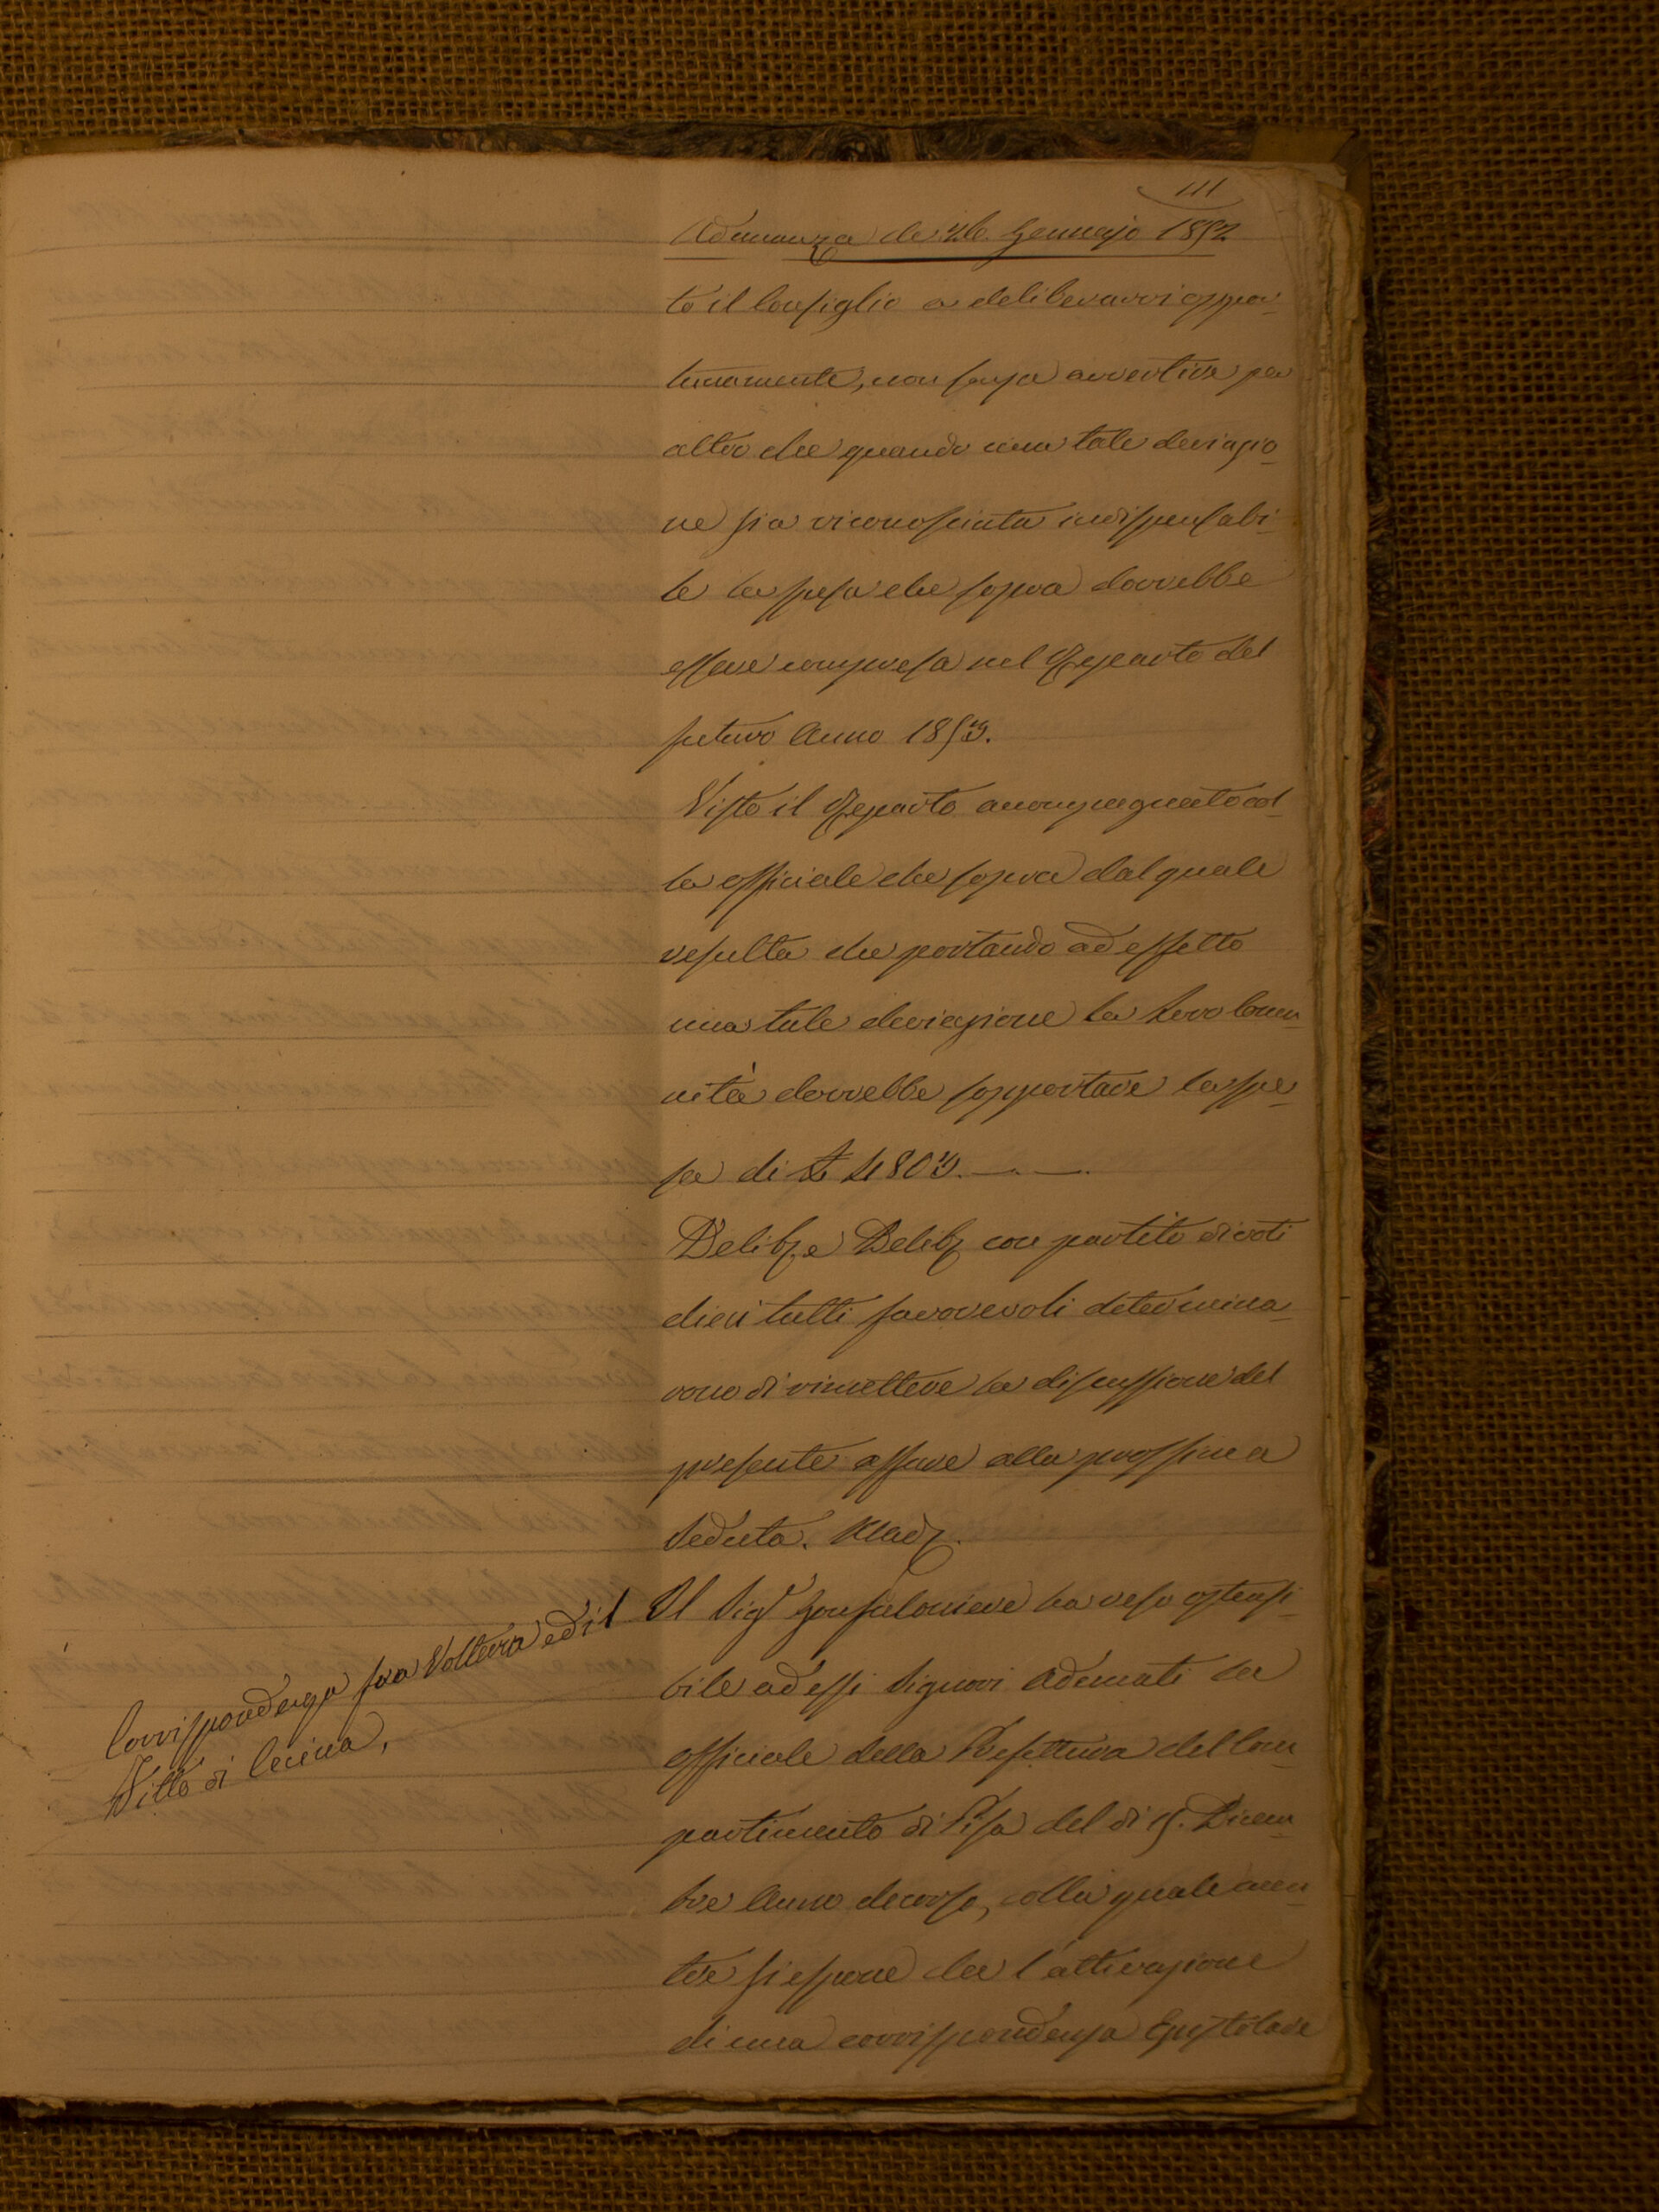 111
Adunanza de' 26. Gennajo 1852
to il Consiglio a deliberarvi oppor=
tunamente, non senza avvertire per
altro che quando una tale deviazio=
ne sia riconosciuta indispensabi=
le la spesa che sopra dovrebbe
essere compresa nel Reparto del
futuro Anno 1853.
Visto il Reparto accompagnato col=
la officiale che sopra dal quale
resulta che portando ad effetto
una tale deviazione la loro Comu=
nità dovrebbe sopportare la spe=
sa di £ 4803.
Delib. e Delib. con partito di voti
dieci tutti favorevoli determina=
rono di rimettere la discussione del
presente affare alla prossima
Seduta. Mad.
Corrispondenza fra Volterra ed il
Fitto di Cecina,
Il Sig.r Gonfaloniere ha reso ostensi=
bile ad essi Signori Adunati la
officiale della Prefettura del Com=
partimento di Pisa del dì 15. Dicem=
bre Anno decorso, colla quale men=
tre si espone che l'attivazione
di una corrispondenza Epistolare